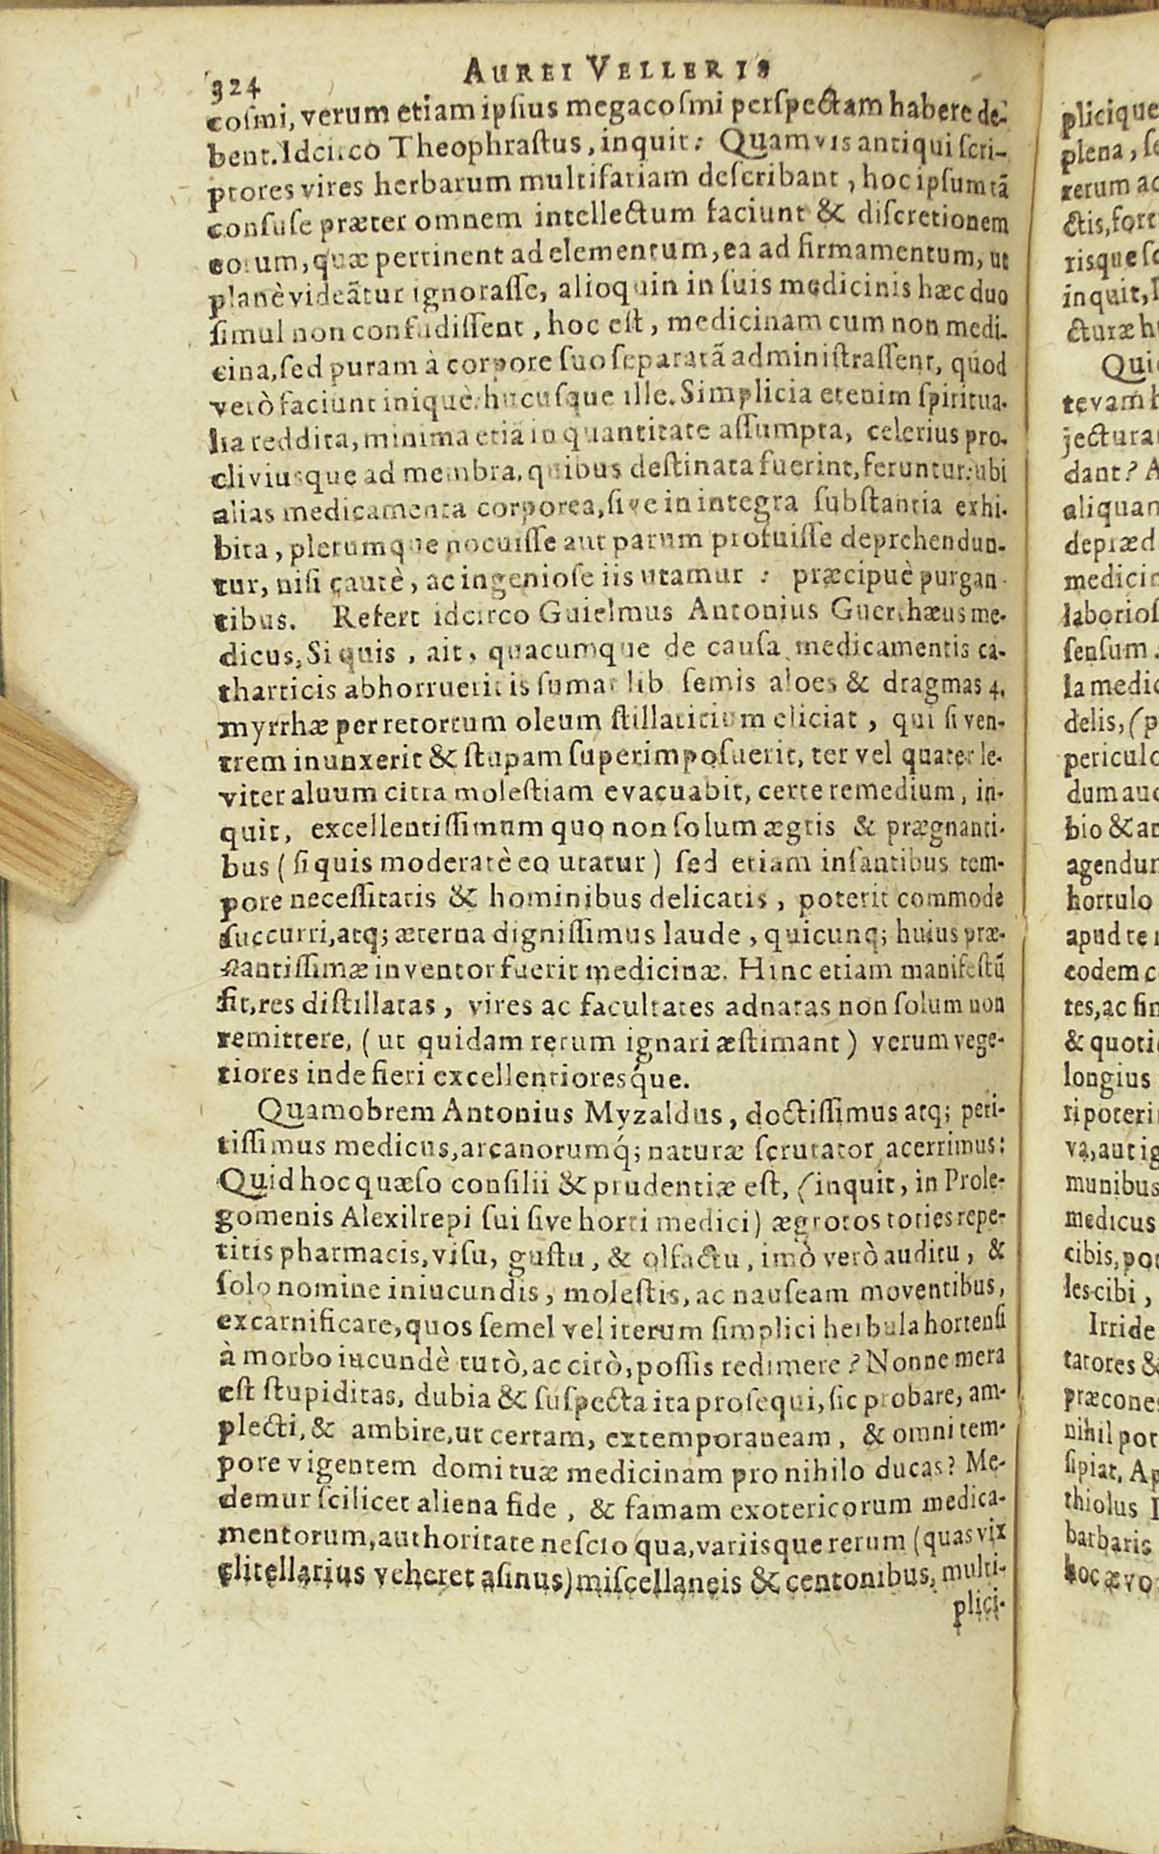 324 AUREI VELLERIS
cosmi, verum etiam ipsius megacosmi perspectam habere de-
bent. Idcirco Theophrastus, inquit: Quamvis antiqui scri-
ptores vires herbarum multifariam describant, hoc ipsum tã
confuse præter omnem intellectum faciunt & discretionem
eorum, quæ pertinent ad elementum, ea ad firmamentum, ut
planè videãtur ignorasse, alioquin in suis medicinis hæc duo
simul non confudissent, hoc est, medicinam cum non medi-
cina, sed puram à corpore suo separatã administrassent, quod
verò faciunt iniquè: hucusque ille. Simplicia etenim spiritua-
lia reddita, minima etiã in quantitate assumpta, celerius pro-
cliviusque ad membra, quibus destinata fuerint, feruntur: ubi
alias medicamenta corporea, sive in integra substantia exhi-
bita, plerumque nocuisse aut parum profuisse deprehendun-
tur, nisi cautè, ac ingeniose iis utamur : præcipuè purgan-
tibus. Refert idcirco Guielmus Antonius Guerthæus me-
dicus, Si quis, ait, quacumque de causa medicamentis ca-
tharticis abhorruerit is sumat lib semis aloes & dragmas 4.
myrrhæ per retortum oleum stillatitium eliciat, qui si ven-
trem inunxerit & stupam superimposuerit, ter vel quater le-
viter aluum citra molestiam evacuabit, certe remedium, in-
quit, excellentissimum quo non solum ægris & prægnanti-
bus (si quis moderatè eo utatur) sed etiam infantibus tem-
pore necessitatis & hominibus delicatis, poterit commode
succurri, atq; æterna dignissimus laude, quicunq; huius præ-
stantissimæ inventor fuerit medicinæ. Hinc etiam manifestũ
fit, res distillatas, vires ac facultates adnatas non solum non
remittere, (ut quidam rerum ignari æstimant) verum vege-
tiores inde fieri excellentioresq́ue.
Quamobrem Antonius Myzaldus, doctissimus atq; peri-
tissimus medicus, arcanorumq́; naturæ scrutator acerrimus:
Quid hoc quæso consilii & prudentiæ est, (inquit, in Prole-
gomenis Alexilrepi sui sive horti medici) ægrotos toties repe-
titis pharmacis, visu, gustu, & olfactu, imò verò auditu, &
solo nomine iniucundis, molestis, ac nauseam moventibus,
excarnificare, quos semel vel iterum simplici herbula hortensi
à morbo iucundè tutò, ac citò, possis redimere? Nonne mera
est stupiditas, dubia & suspecta ita prosequi, sic probare, am-
plecti, & ambire, ut certam, extemporaneam, & omni tem-
pore vigentem domi tuæ medicinam pro nihilo ducas? Me-
demur scilicet aliena fide, & famam exotericorum medica-
mentorum, authoritate nescio qua, variisque rerum (quas vix
clitellarius veheret asinus) miscellaneis & centonibus, multi-
plici-
plicique
plena, se
rerum ac
ctis, fort
risque sc
inquit, I
cturæ h
Quid
te vam h
jectura
dant? A
aliquan
depræd
medicin
laborios
sensum.
la medic
delis, (p
periculo
dum auc
bio & ar
agendun
hortulo
apud te
eodem c
tes, ac fin
& quoti
longius
ri poteri
va, aut ig
munibus
medicus
cibis, pot
les cibi,
Irride
tatores &
præcone
nihil pot
sipiat, Ap
thiolus
barbaris
hoc ævo